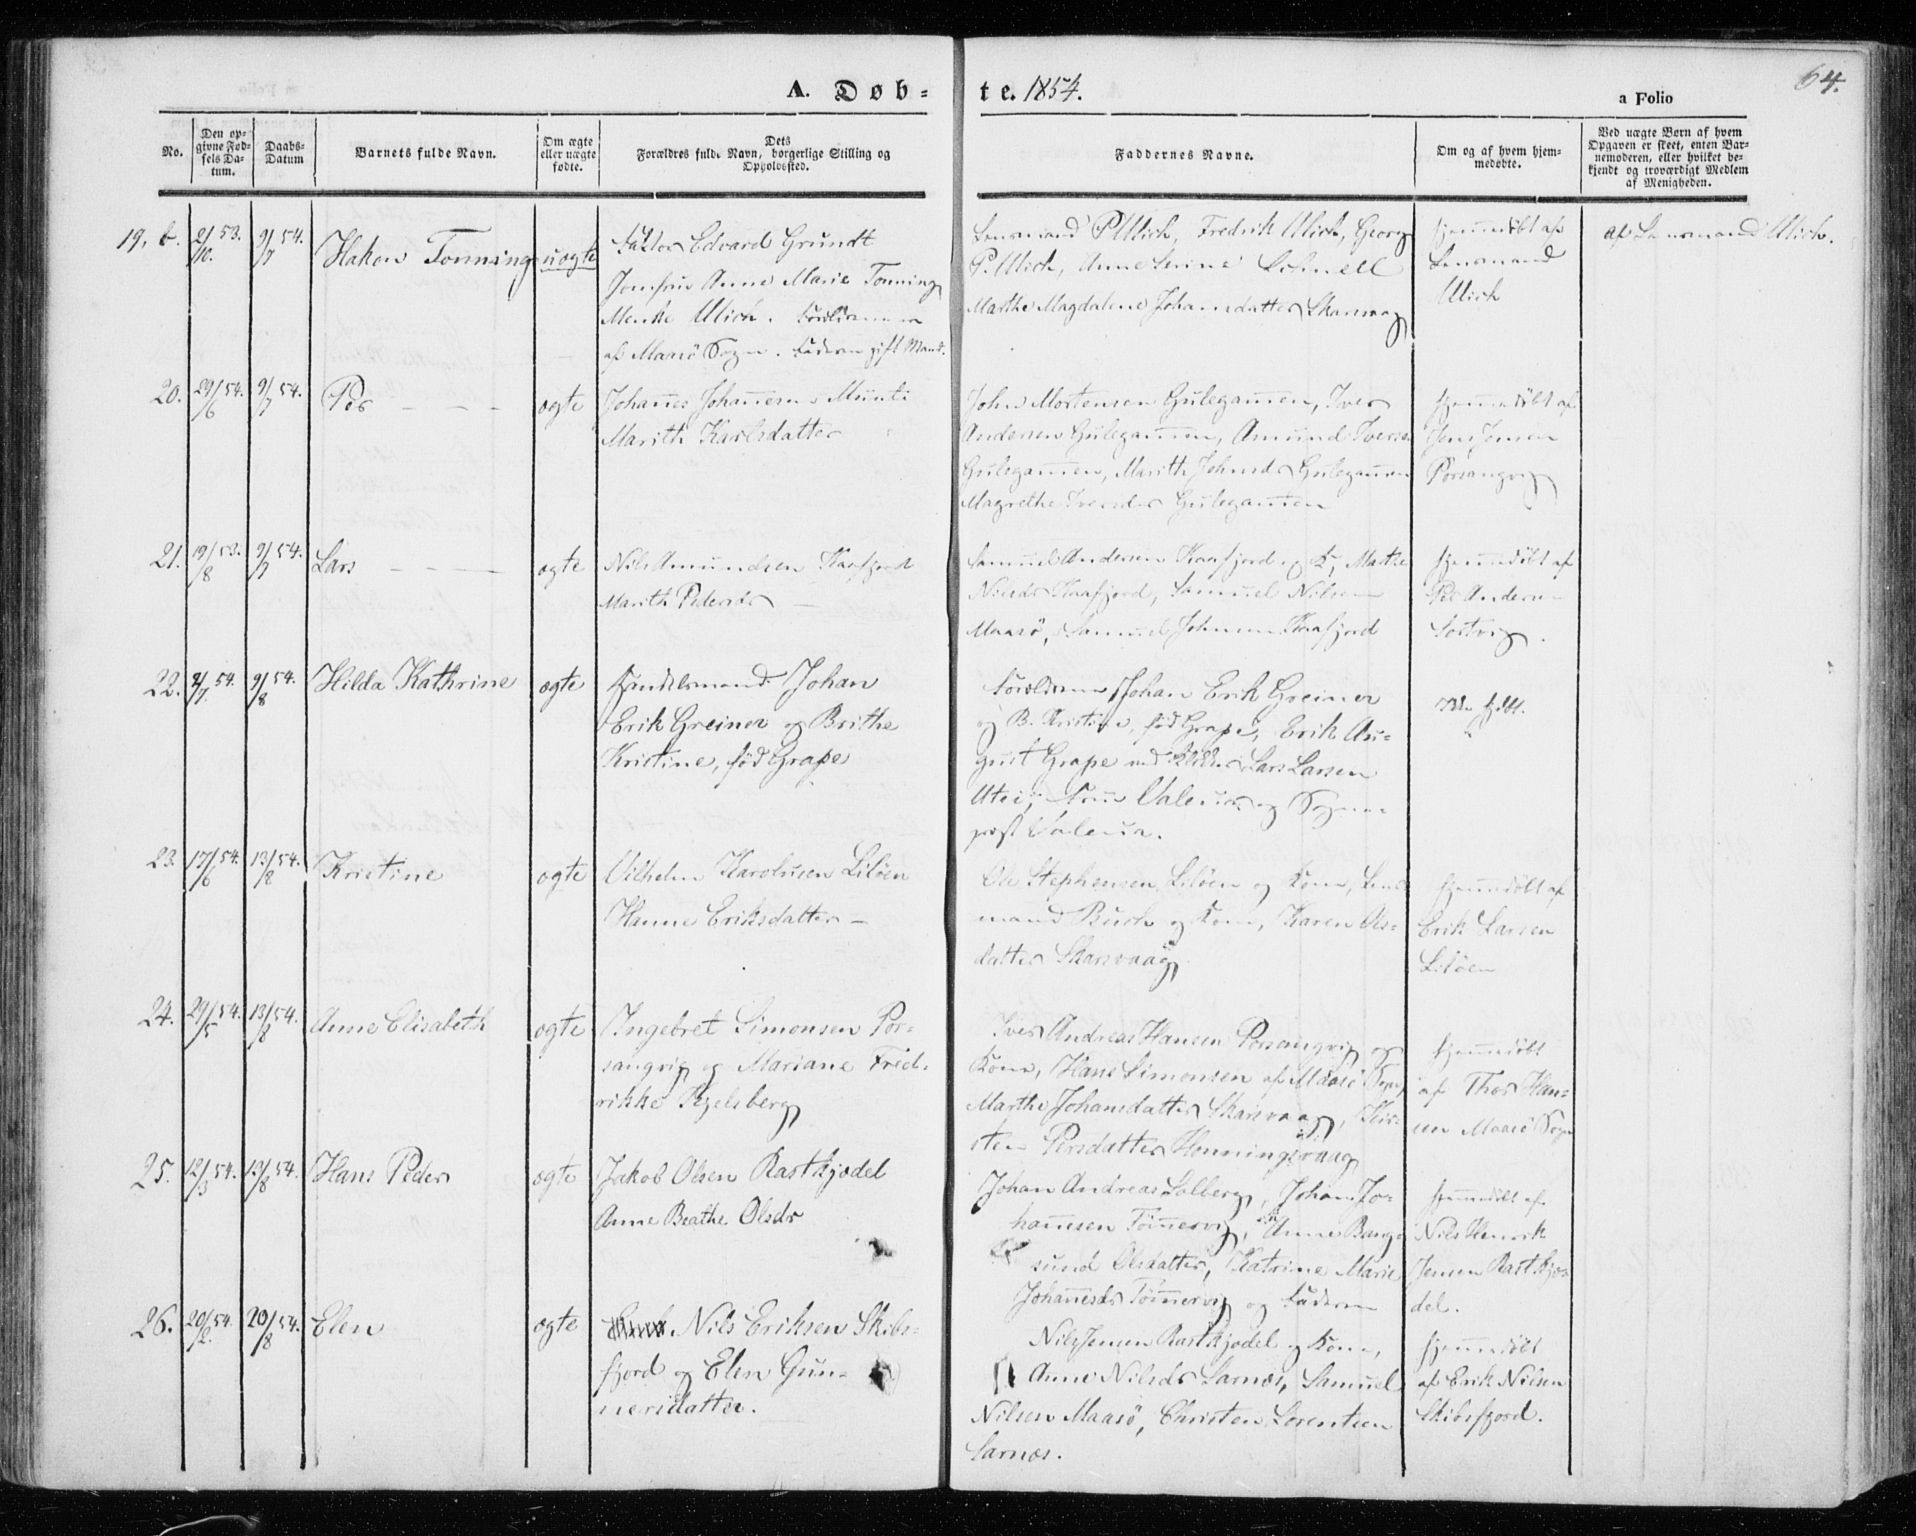 64.
A. Døb-
te. 1854.
a Folio
No.
Den op-
givne Fød-
sels Da-
tum.
Daabs-
Datum
Barnets fulde Navn.
Om ægte
eller uægte
fødte.
Dets
Forældres fulde Navn, borgerlige Stilling og
Opholdssted.
Faddernes Navne.
Om og af hvem hjem-
medøbte.
Ved uægte Børn af hvem
Opgaven er skeet, enten Bar-
nemoderen, eller hvilket be-
kjendt og troværdigt Medlem
af Menigheden.
19, b. 2/10 53. 9/7 54. Hakon Tonning uægte
Faktor Edvard Grundt
Jomfru Anne Marie Tonning
Menke Ulich. Forældrene
af Maasö Sogn. Faderen gift Mand.
Lensmand P Ulich, Fredrik Ulich, Georg
P. Ulich, Anne Serine Schnell
Marthe Magdalene Johansdatter Skarsvaag
Hjemmedöbt af
Lensmand
Ulich
af Lensmand Ulich.
20. 29/6 54. 9/7 54. Per - - - ægte
Johanes Johannesen Munti
Marith Karlsdatter
John Mortensen Gulegammen, Iver
Andersen Gulegammen, Amund Iversen
Gulegammen, Marith Johnsdr Gulegammen
Magrethe Iversdr Gulegammen
Hjemmedöbt af
Jens Jensen
Porsangvig
21. 19/8 53. 9/7 54. Lars - - - ægte
Nils Amundsen Kaafjord
Marith Pedersdr -
Samuel Andersen Kaafjord og K, Marthe
Nilsdr Kaafjord, Samuel Nilsen
Maasö, Samuel Johnsen Kaafjord
Hjemmedöbt af
Per Andersen
Sortvig.
22. 8/7 54. 9/8 54. Hilda Kathrine ægte
Handelsmand Johan
Erik Greiner og Brithe
Kristine, föd Grape
Forældrene Johan Erik Greiner
og B. Kristine, föd Grape, Erik Au-
gust Grape med Lars Larsen
Utsi, Valeur og Sogne-
prest Valeur.
23. 17/6 54. 13/8 54. Kristine ægte
Vilhelm Karolusen Lilöen
Hanne Eriksdatter -
Ole Stephensen Lilöen og Kone, Lens-
mand Buch og Kone, Karen Ols-
datter Skarsvaag
Hjemmedöbt af
Erik Larsen
Lilöen
24. 29/5 54. 13/8 54. Anne Elisabeth ægte
Ingebret Simonsen Por-
sangvig og Mariane Fred-
rikke Pezelsberg
Iver Andreas Hansen Porsangvig og
Kone, Hans Simonsen af Maasö Sogn,
Marthe Johansdatter Skarsvaag, Kir-
sten Persdatter Honningsvaag
Hjemmedöbt
af Thor Han-
sen Maasö Sogn
25. 12/3 54. 13/8 54. Hans Peder ægte
Jakob Olsen Rastkjodel
Anne Beathe Olsdr
Johan Andreas Solberg, Johan Jo-
hannesen Tömmervig, Anne Bange
sund Olsdatter, Katrine Marie
Johannesdr Tömmervig og Faderen
Hjemmedöbt af
Nils Henrik
Jensen Rastkjo-
del.
26. 20/2 54. 20/8 54. Elen ægte
Nils Eriksen Skibs-
fjord og Elen Gun-
nersdatter.
Nils Jensen Rastkjodel og Kone,
Anne Nilsdr Sarnes, Samuel
Nilsen Maasö, Christen Lorentsen
Sarnes.
Hjemmedöbt
af Erik Nilsen
Skibsfjord.